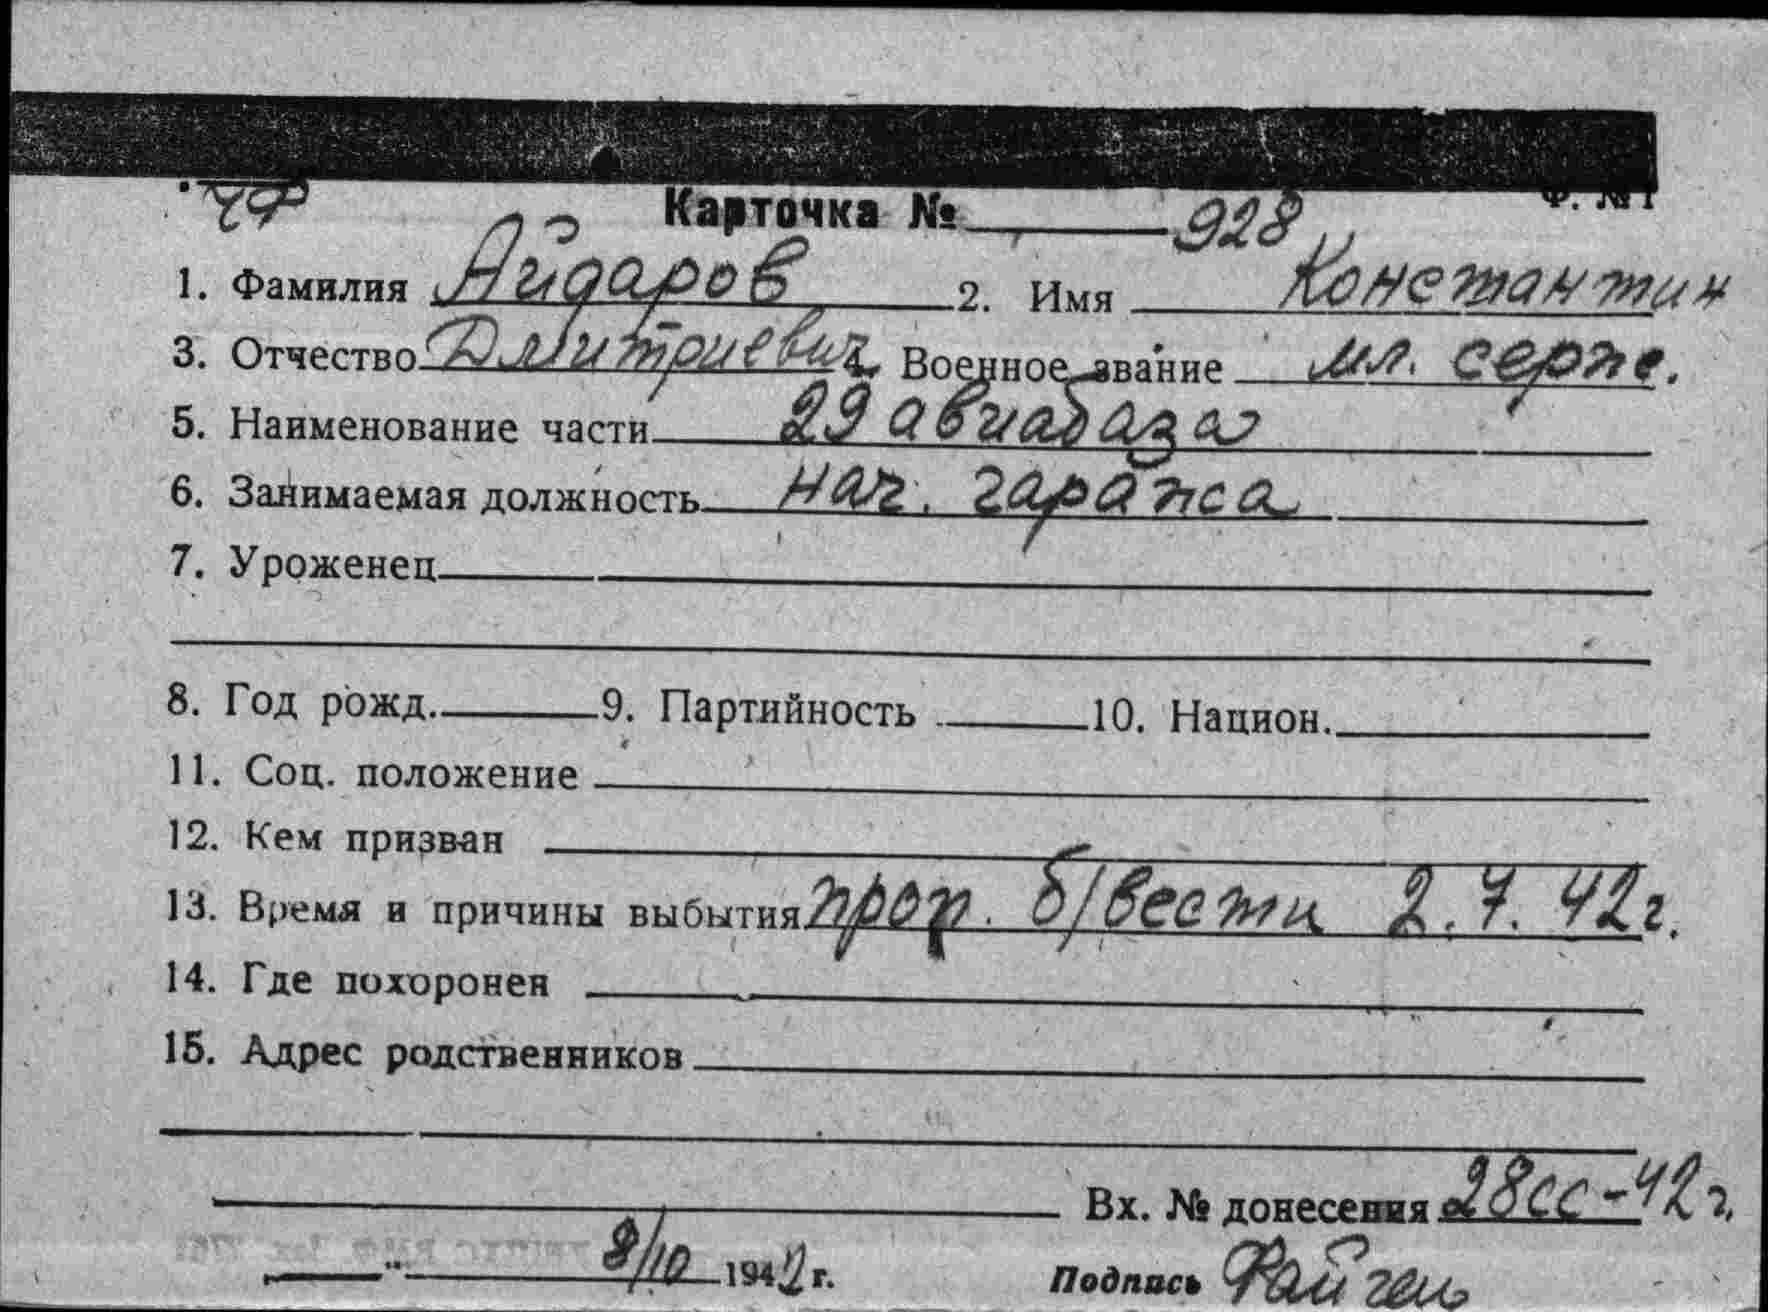 ЧФ
Ф. №1
Карточка № 928
1. Фамилия Айдаров 2. Имя Константин
3. Отчество Дмитриевич 4. Военное звание мл. серж.
5. Наименование части 29 авиабаза
6. Занимаемая должность нач. гаража
7. Уроженец
8. Год рожд. 9. Партийность 10. Национ.
11. Соц. положение
12. Кем призван
13. Время и причины выбытия проп. б/вести 2.7.42г.
14. Где похоронен
15. Адрес родственников
Вх. № донесения 28сс-42г.
" 8/10 1942 г.
Подпись